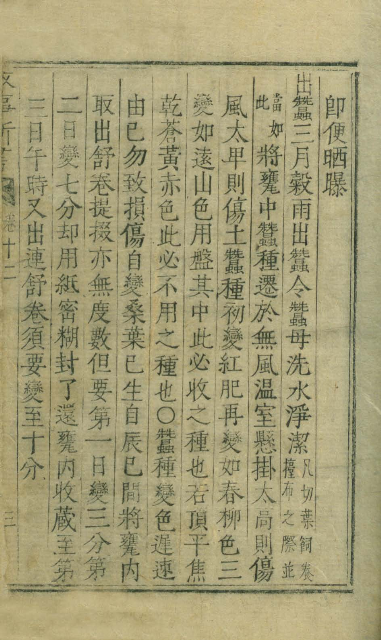 卽便晒曝
出蠶三月穀雨出蠶令蠶母洗水淨潔凡切葉飼養擡布之際並
當如此將甕中蠶種遷於無風温室懸掛太高則傷
風太卑則傷土蠶種初變紅肥再變如春柳色三
變如遠山色用盤其中此必收之種也若頂平焦
乾蒼黃赤色此必不用之種也〇蠶種變色遲速
由已勿致損傷自變桑葉已生自辰巳間將甕內
取出舒卷提掇亦無度數但要第一日變三分第
二日變七分却用紙密糊封了還甕內收蔵至第
三日午時又出連舒卷須要變至十分
卷十二
三